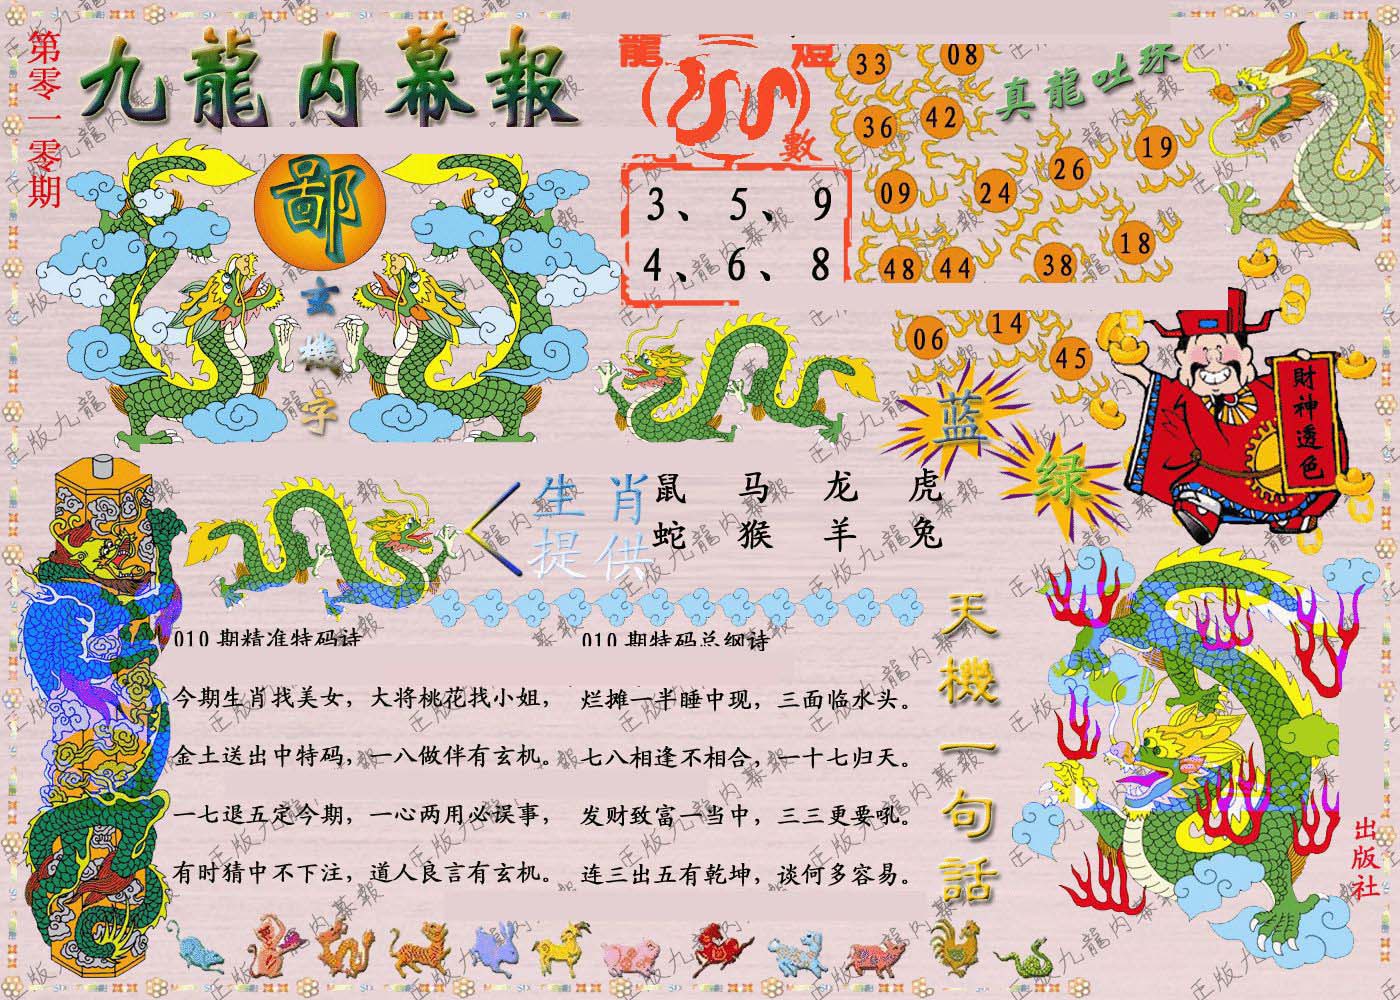 第零一零期
九龍内幕報
鄙
玄機字
龍 燈
數
3、5、9
4、6、8
真龍吐珠
33 08
36 42
09 24 26 19
48 44 38 18
06 14 45
蓝
绿
財神透色
生肖
提供
鼠 马 龙 虎
蛇 猴 羊 兔
010期精准特码诗
今期生肖找美女，大将桃花找小姐，
金土送出中特码，一八做伴有玄机。
一七退五定今期，一心两用必误事，
有时猜中不下注，道人良言有玄机。
010期特码总纲诗
烂摊一半睡中现，三面临水头。
七八相逢不相合，一十七归天。
发财致富一当中，三三更要吼。
连三出五有乾坤，谈何多容易。
天機一句話
出版社
正版九龍内幕報